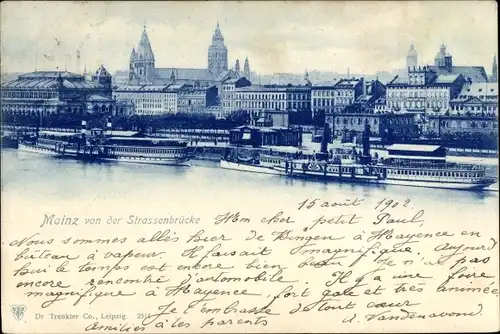 Mainz von der Strassenbrücke
15 août 1902
Mon cher petit Paul,
Nous sommes allés hier de Bingen à Mayence en
bâteau à vapeur. Il faisait magnifique. Aujourd
hui le temps est encore bien beau. Je n'ai pas
encore rencontré d'automobile. Il y a une foire
magnifique à Mayence, fort gaie et très animée
Je t'embrasse de tout cœur
Amitiés à tes parents
Dr Trenkler Co., Leipzig.